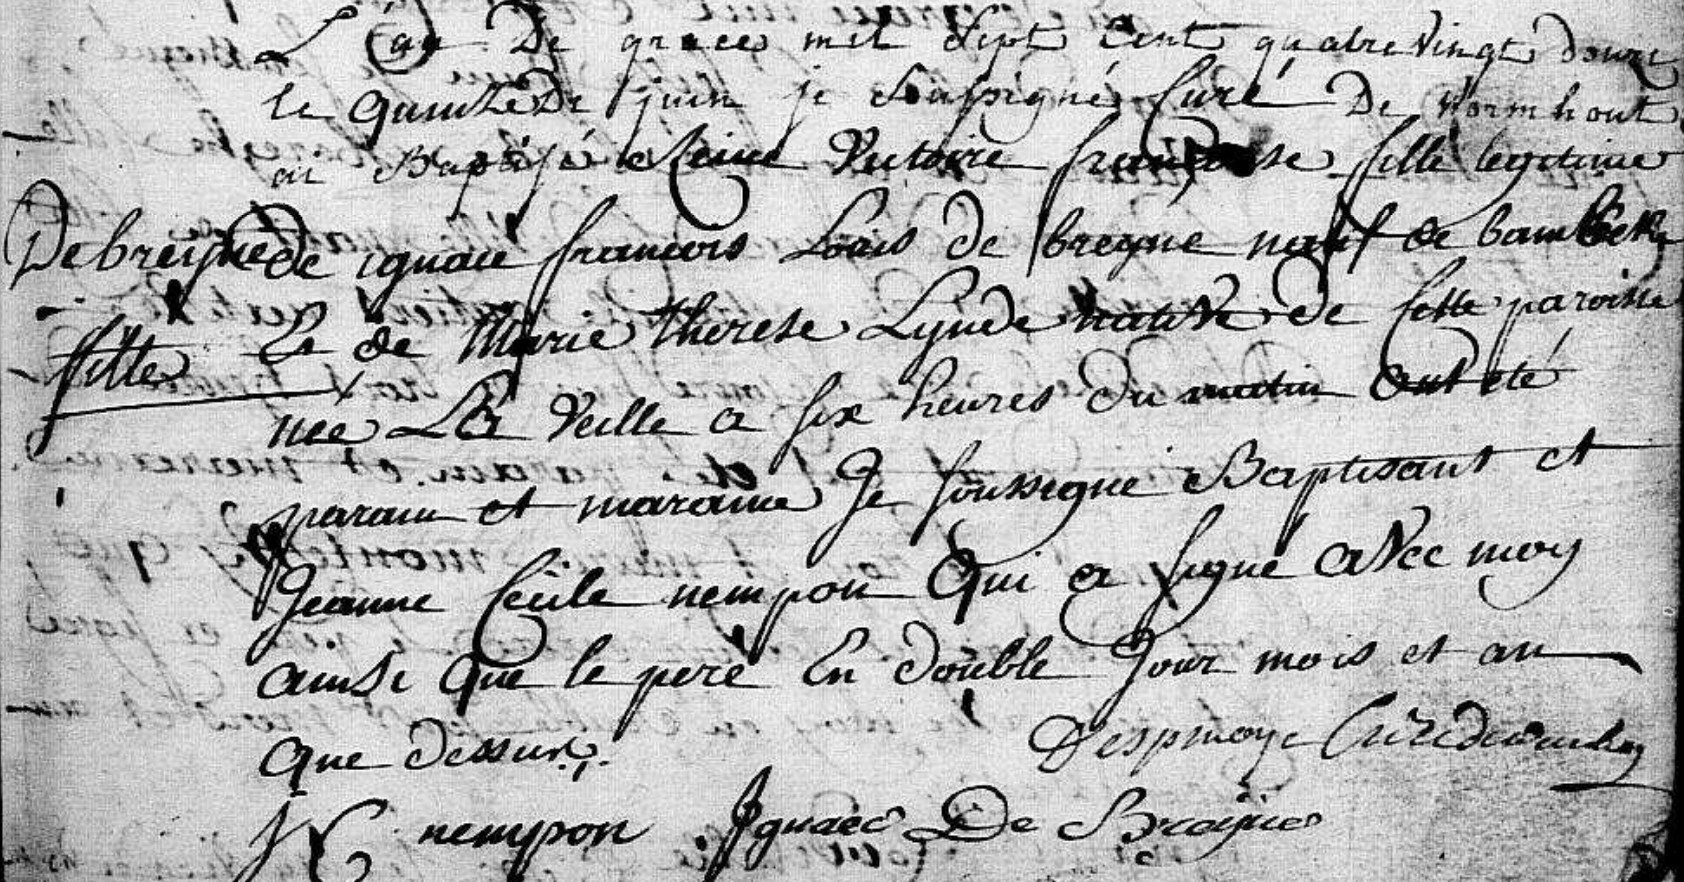 L'an De grace mil Sept Cent quatre Vingt douze
le quinze De juin je Soussigné Curé De Wormhout
ai Baptisé Reine Victoire françoise fille legitime
Debreyne de ignace francois Louis de breyne natif de bambeck
fille Et de Marie therese Lynde native de Cette paroisse
née La Veille a six heures du matin ont eté
parain et maraine Je soussigné Baptisant et
Jeanne Cecile nempon Qui a signé avec moy
ainsi que le pere En double Jour mois et an
que dessus.
Curé
J C nempon Ignace De Breyne